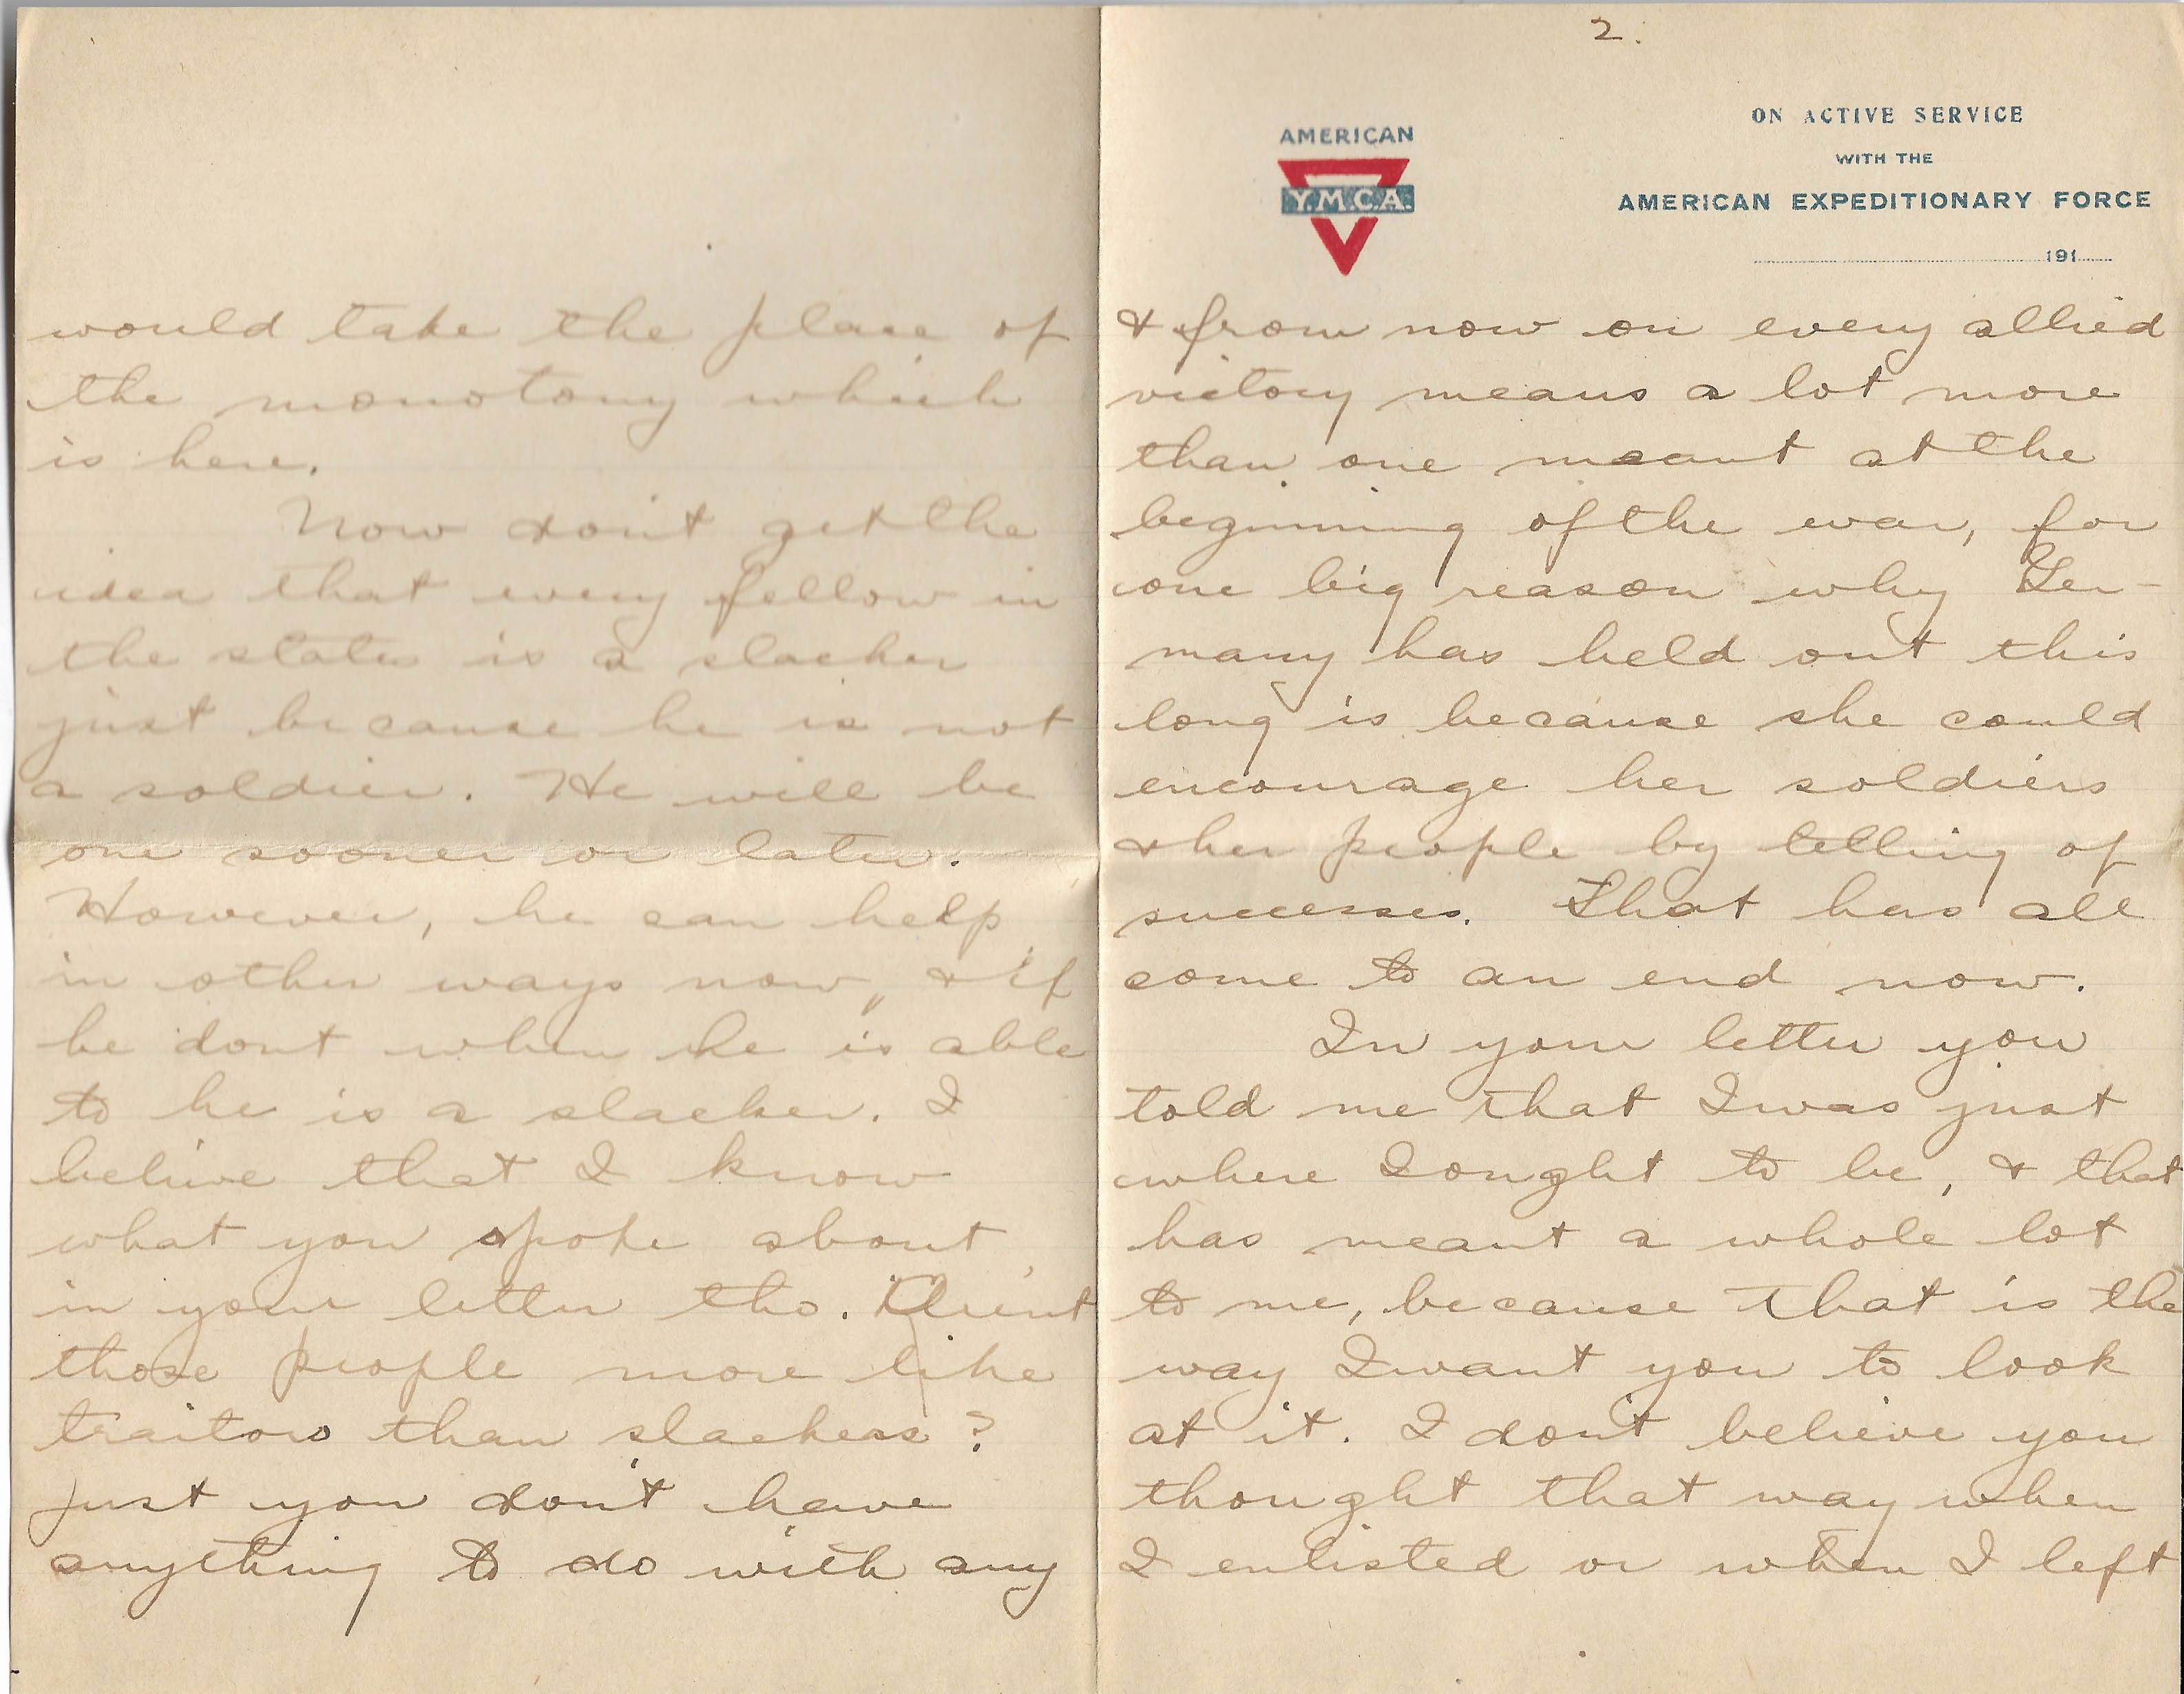 would take the place of
the monotony which
is here.
Now don't get the
idea that every fellow in
the states is a slacker
just because he is not
a soldier. He will be
one sooner or later.
However, he can help
in other ways now, & if
he dont when he is able
to he is a slacker. I
belive that I know
what you spoke about
in your letter tho.
those people more like
traitors than slackers?
Just you don't have
anything to do with any
2.
AMERICAN
Y.M.C.A.
ON ACTIVE SERVICE
WITH THE
AMERICAN EXPEDITIONARY FORCE
191
& from now on every allied
victory means a lot more
than one meant at the
beginning of the war, for
one big reason why Ger-
many has held out this
long is because she could
encourage her soldiers
& her people by telling of
successes. That has all
come to an end now.
In your letter you
told me that I was just
where I ought to be, & that
has meant a whole lot
to me, because that is the
way I want you to look
at it. I don't believe you
thought that way when
I enlisted or when I left